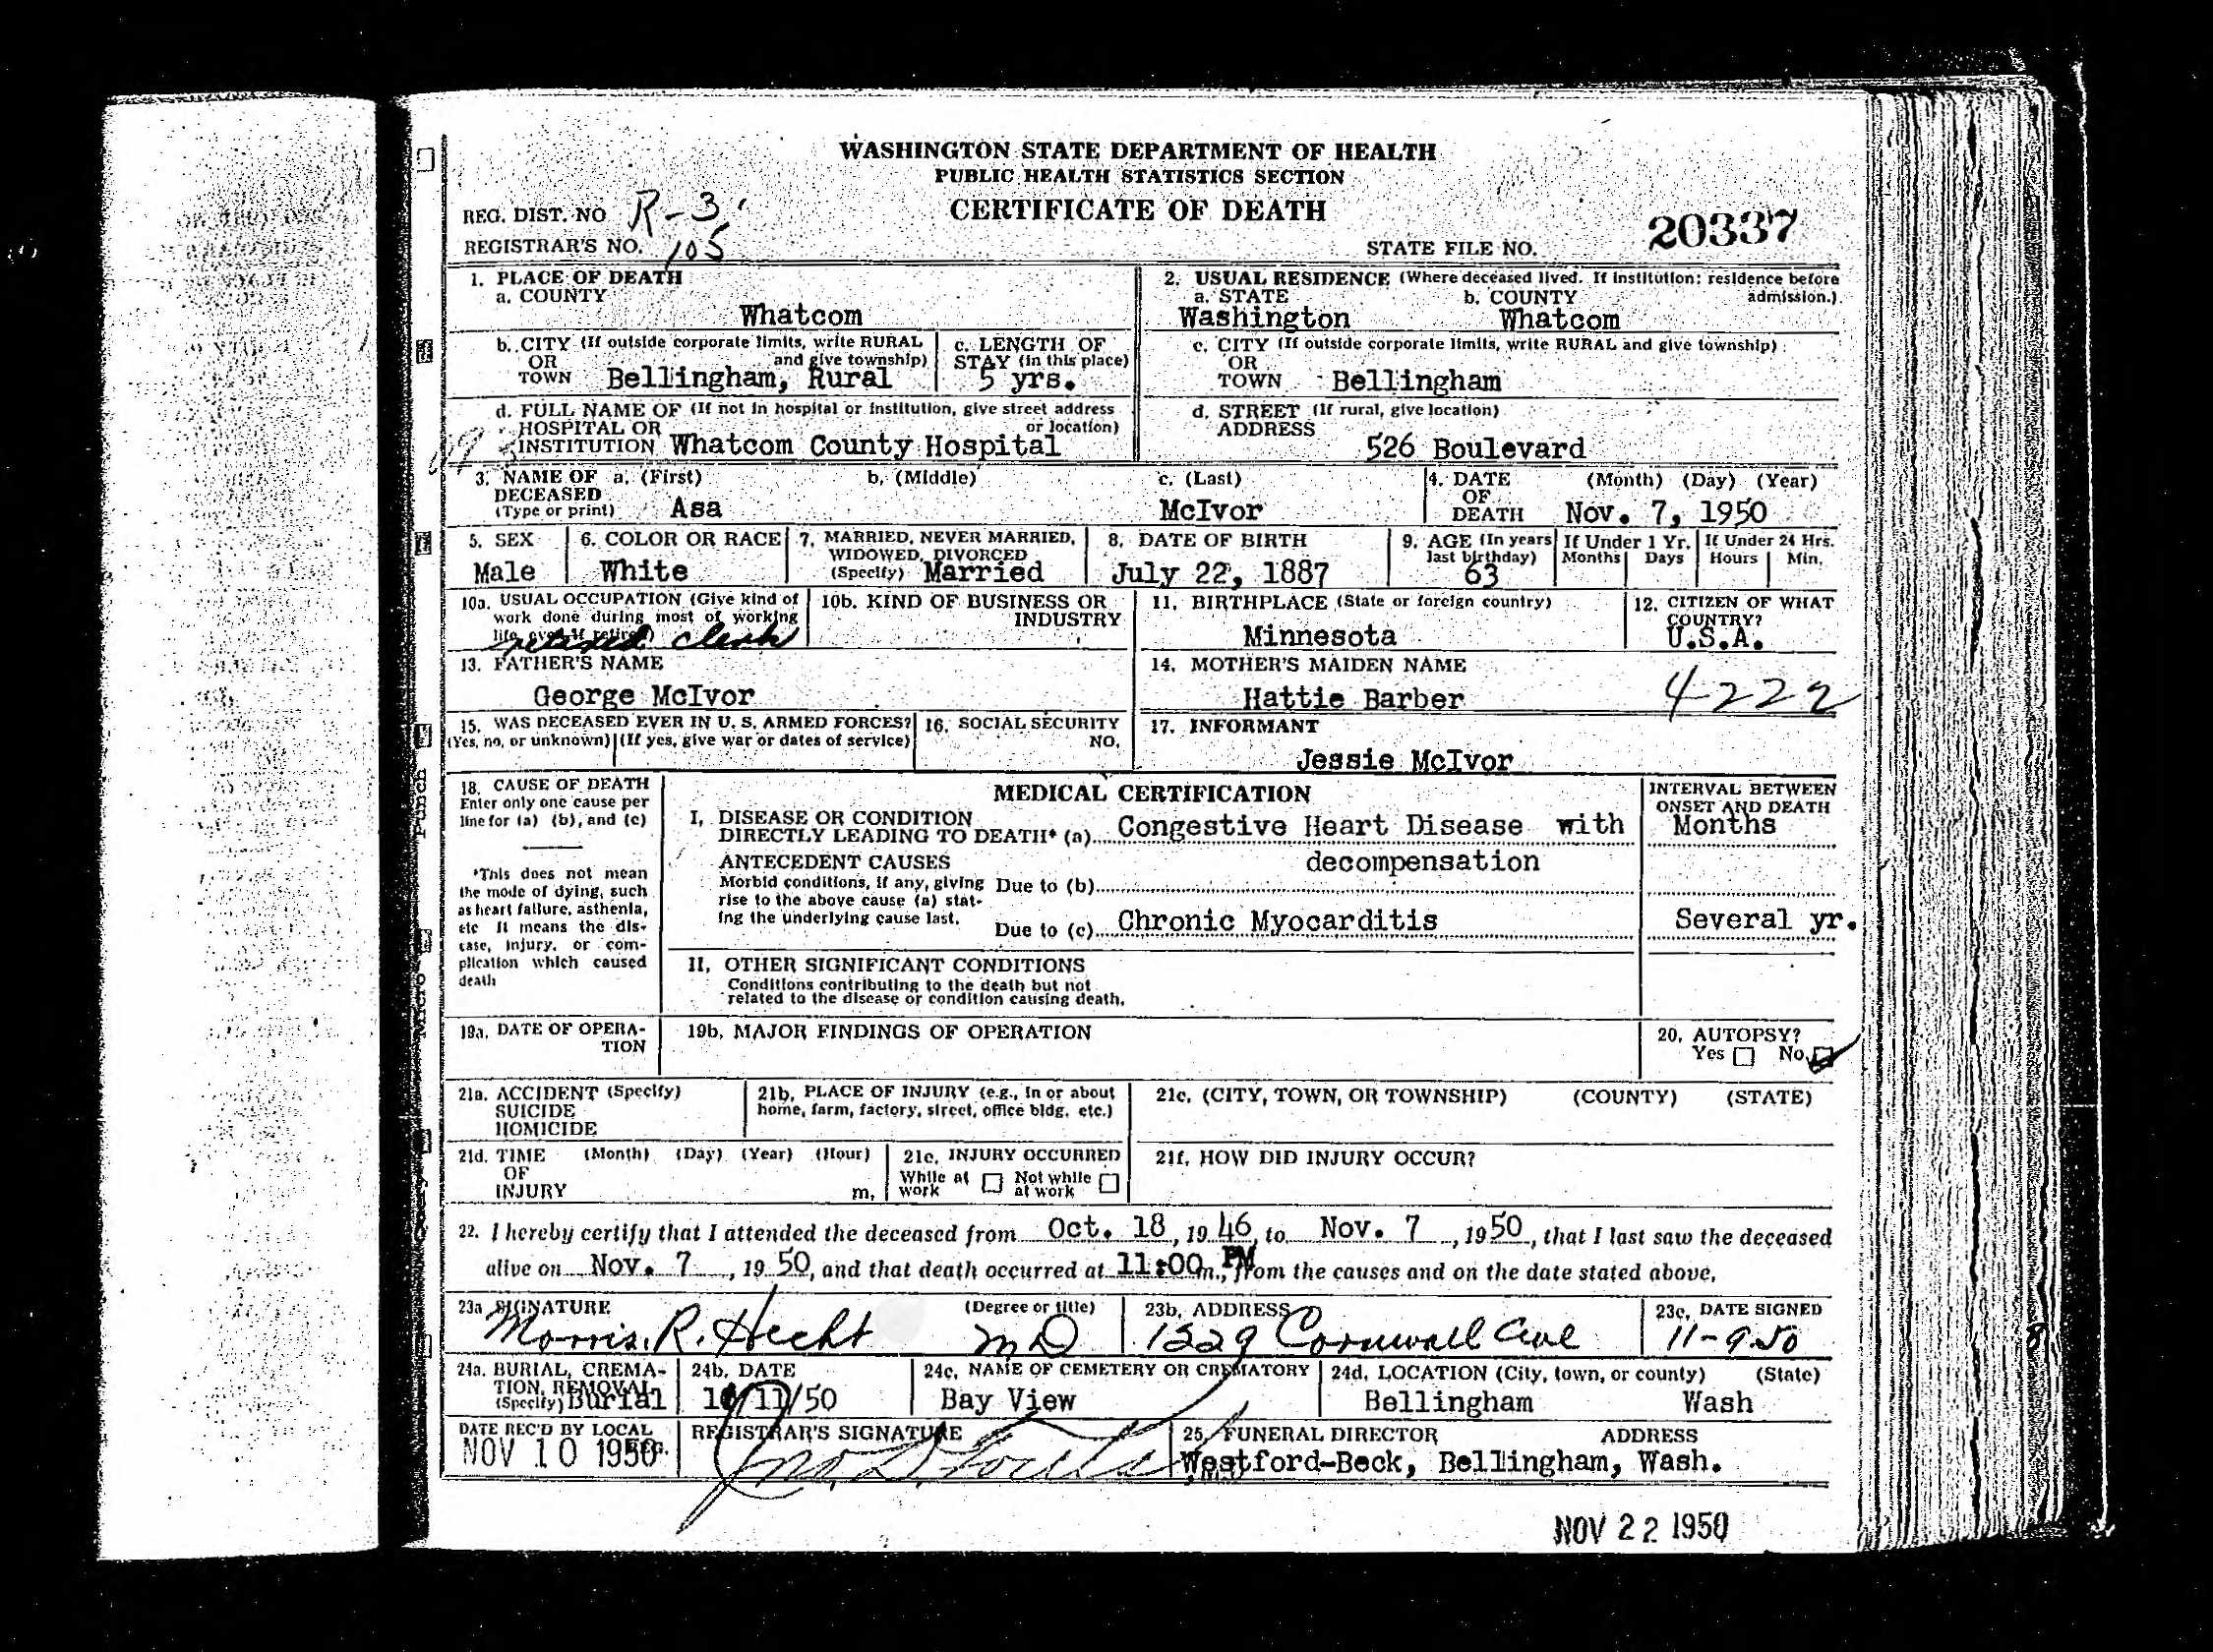 WASHINGTON STATE DEPARTMENT OF HEALTH
PUBLIC HEALTH STATISTICS SECTION
CERTIFICATE OF DEATH
REG. DIST. NO R-3
REGISTRAR'S NO. 105
STATE FILE NO. 20337
1. PLACE OF DEATH
a. COUNTY
Whatcom
2. USUAL RESIDENCE (Where deceased lived. If institution: residence before admission.)
a. STATE b. COUNTY
Washington Whatcom
b. CITY (If outside corporate limits, write RURAL and give township)
OR TOWN Bellingham, Rural
c. LENGTH OF STAY (in this place)
5 yrs.
c. CITY (If outside corporate limits, write RURAL and give township)
OR TOWN Bellingham
d. FULL NAME OF (If not in hospital or institution, give street address or location)
HOSPITAL OR
INSTITUTION Whatcom County Hospital
d. STREET (If rural, give location)
ADDRESS
526 Boulevard
3. NAME OF DECEASED (Type or print)
a. (First) b. (Middle) c. (Last)
Asa McIvor
4. DATE OF DEATH (Month) (Day) (Year)
Nov. 7, 1950
5. SEX
Male
6. COLOR OR RACE
White
7. MARRIED, NEVER MARRIED, WIDOWED, DIVORCED (Specify) Married
8. DATE OF BIRTH
July 22, 1887
9. AGE (In years last birthday)
63
If Under 1 Yr. Months Days
If Under 24 Hrs. Hours Min.
10a. USUAL OCCUPATION (Give kind of work done during most of working life, even if retired)
retired clerk
10b. KIND OF BUSINESS OR INDUSTRY
11. BIRTHPLACE (State or foreign country)
Minnesota
12. CITIZEN OF WHAT COUNTRY?
U.S.A.
13. FATHER'S NAME
George McIvor
14. MOTHER'S MAIDEN NAME
Hattie Barber
4222
15. WAS DECEASED EVER IN U. S. ARMED FORCES?
(Yes, no, or unknown) (If yes, give war or dates of service)
16. SOCIAL SECURITY NO.
17. INFORMANT
Jessie McIvor
18. CAUSE OF DEATH
Enter only one cause per line for (a) (b), and (c)
*This does not mean the mode of dying, such as heart failure, asthenia, etc It means the disease, injury, or complication which caused death
MEDICAL CERTIFICATION
INTERVAL BETWEEN ONSET AND DEATH
I. DISEASE OR CONDITION
DIRECTLY LEADING TO DEATH* (a) Congestive Heart Disease with Months
ANTECEDENT CAUSES decompensation
Morbid conditions, if any, giving rise to the above cause (a) stating the underlying cause last.
Due to (b)
Due to (c) Chronic Myocarditis Several yr.
II. OTHER SIGNIFICANT CONDITIONS
Conditions contributing to the death but not
related to the disease or condition causing death.
19a. DATE OF OPERATION
19b. MAJOR FINDINGS OF OPERATION
20. AUTOPSY?
Yes No
21a. ACCIDENT (Specify)
SUICIDE
HOMICIDE
21b. PLACE OF INJURY (e.g., in or about home, farm, factory, street, office bldg. etc.)
21c. (CITY, TOWN, OR TOWNSHIP) (COUNTY) (STATE)
21d. TIME (Month) (Day) (Year) (Hour)
OF
INJURY m.
21e. INJURY OCCURRED
While at work Not while at work
21f. HOW DID INJURY OCCUR?
22. I hereby certify that I attended the deceased from Oct. 18, 19 46, to Nov. 7, 1950, that I last saw the deceased
alive on Nov. 7, 19 50, and that death occurred at 11:00 m., PM from the causes and on the date stated above.
23a SIGNATURE (Degree or title)
Morris R. Hecht MD
23b. ADDRESS
1229 Cornwall Ave
23c. DATE SIGNED
11-9-50
24a. BURIAL, CREMATION, REMOVAL (Specify) Burial
24b. DATE
11/50
24c. NAME OF CEMETERY OR CREMATORY
Bay View
24d. LOCATION (City, town, or county) (State)
Bellingham Wash
DATE REC'D BY LOCAL REG.
NOV 10 1950
REGISTRAR'S SIGNATURE
25. FUNERAL DIRECTOR ADDRESS
Westford-Beck, Bellingham, Wash.
NOV 22 1950